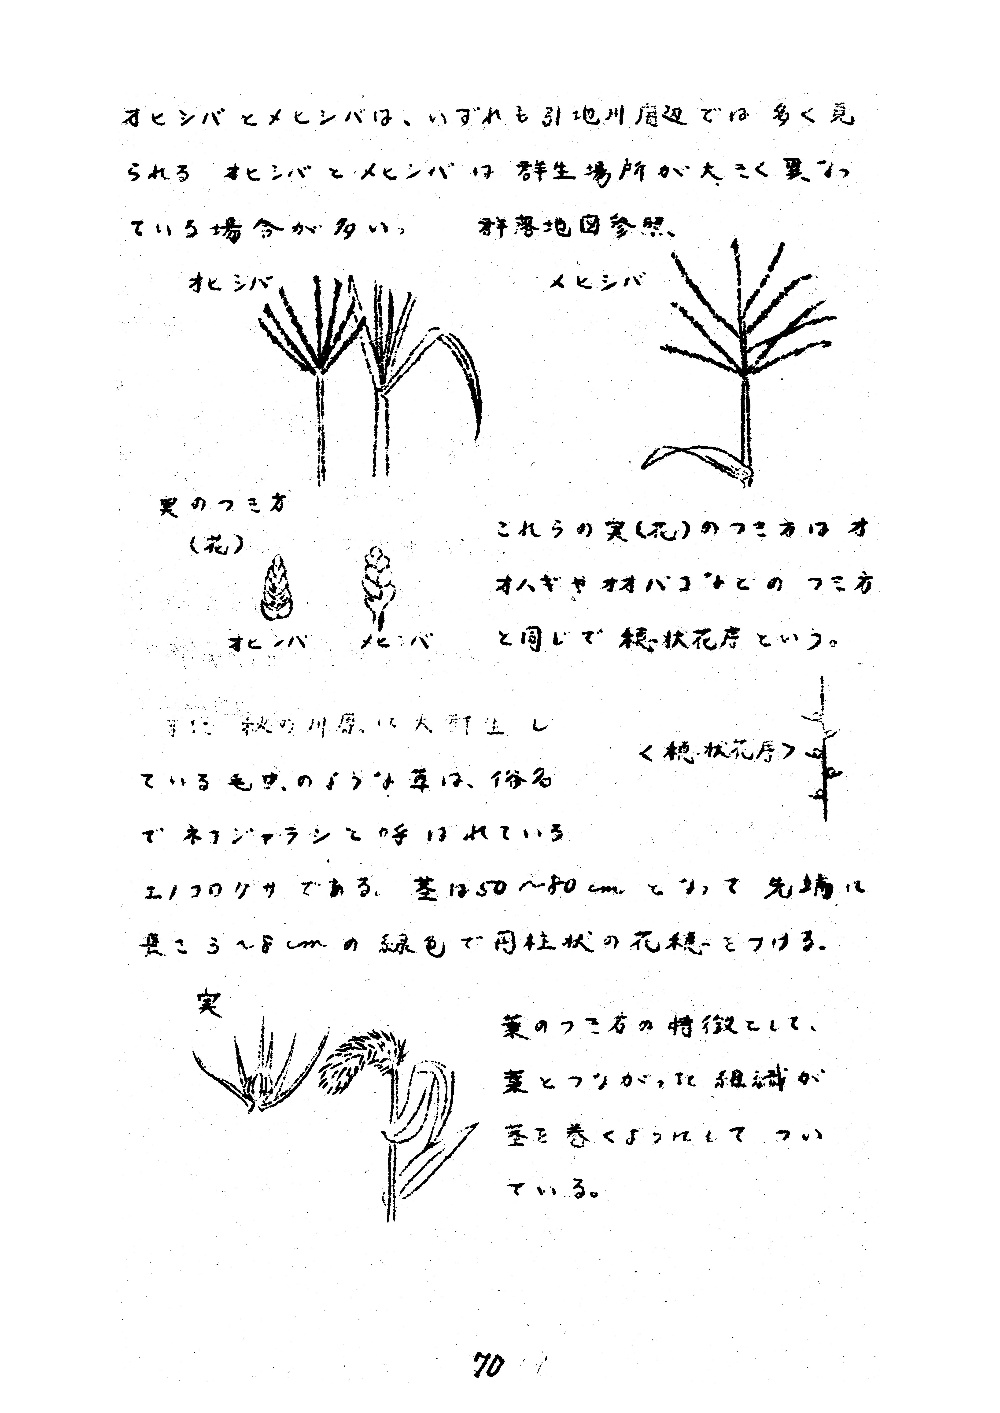 オヒシバとメヒシバは、いずれも引地川周辺では多く見
られる オヒシバとメヒシバは群生場所が大きく異なっ
ている場合が多い。 群落地図参照、
オヒシバ
メヒシバ
実のつき方
(花)
オヒシバ メヒシバ
これらの実(花)のつき方はオ
オハギやオオバコなどのつき方
と同じで穂状花序という。
<穂状花序>
また 秋の川原に大群生し
ている毛虫のような草は、俗名
でネコジャラシと呼ばれている
エノコログサである。茎は50〜80cmとなって先端に
長さ3〜8cmの緑色で円柱状の花穂をつける。
実
葉のつき方の特徴として、
葉とつながった組織が
茎を巻くようにしてつい
ている。
70